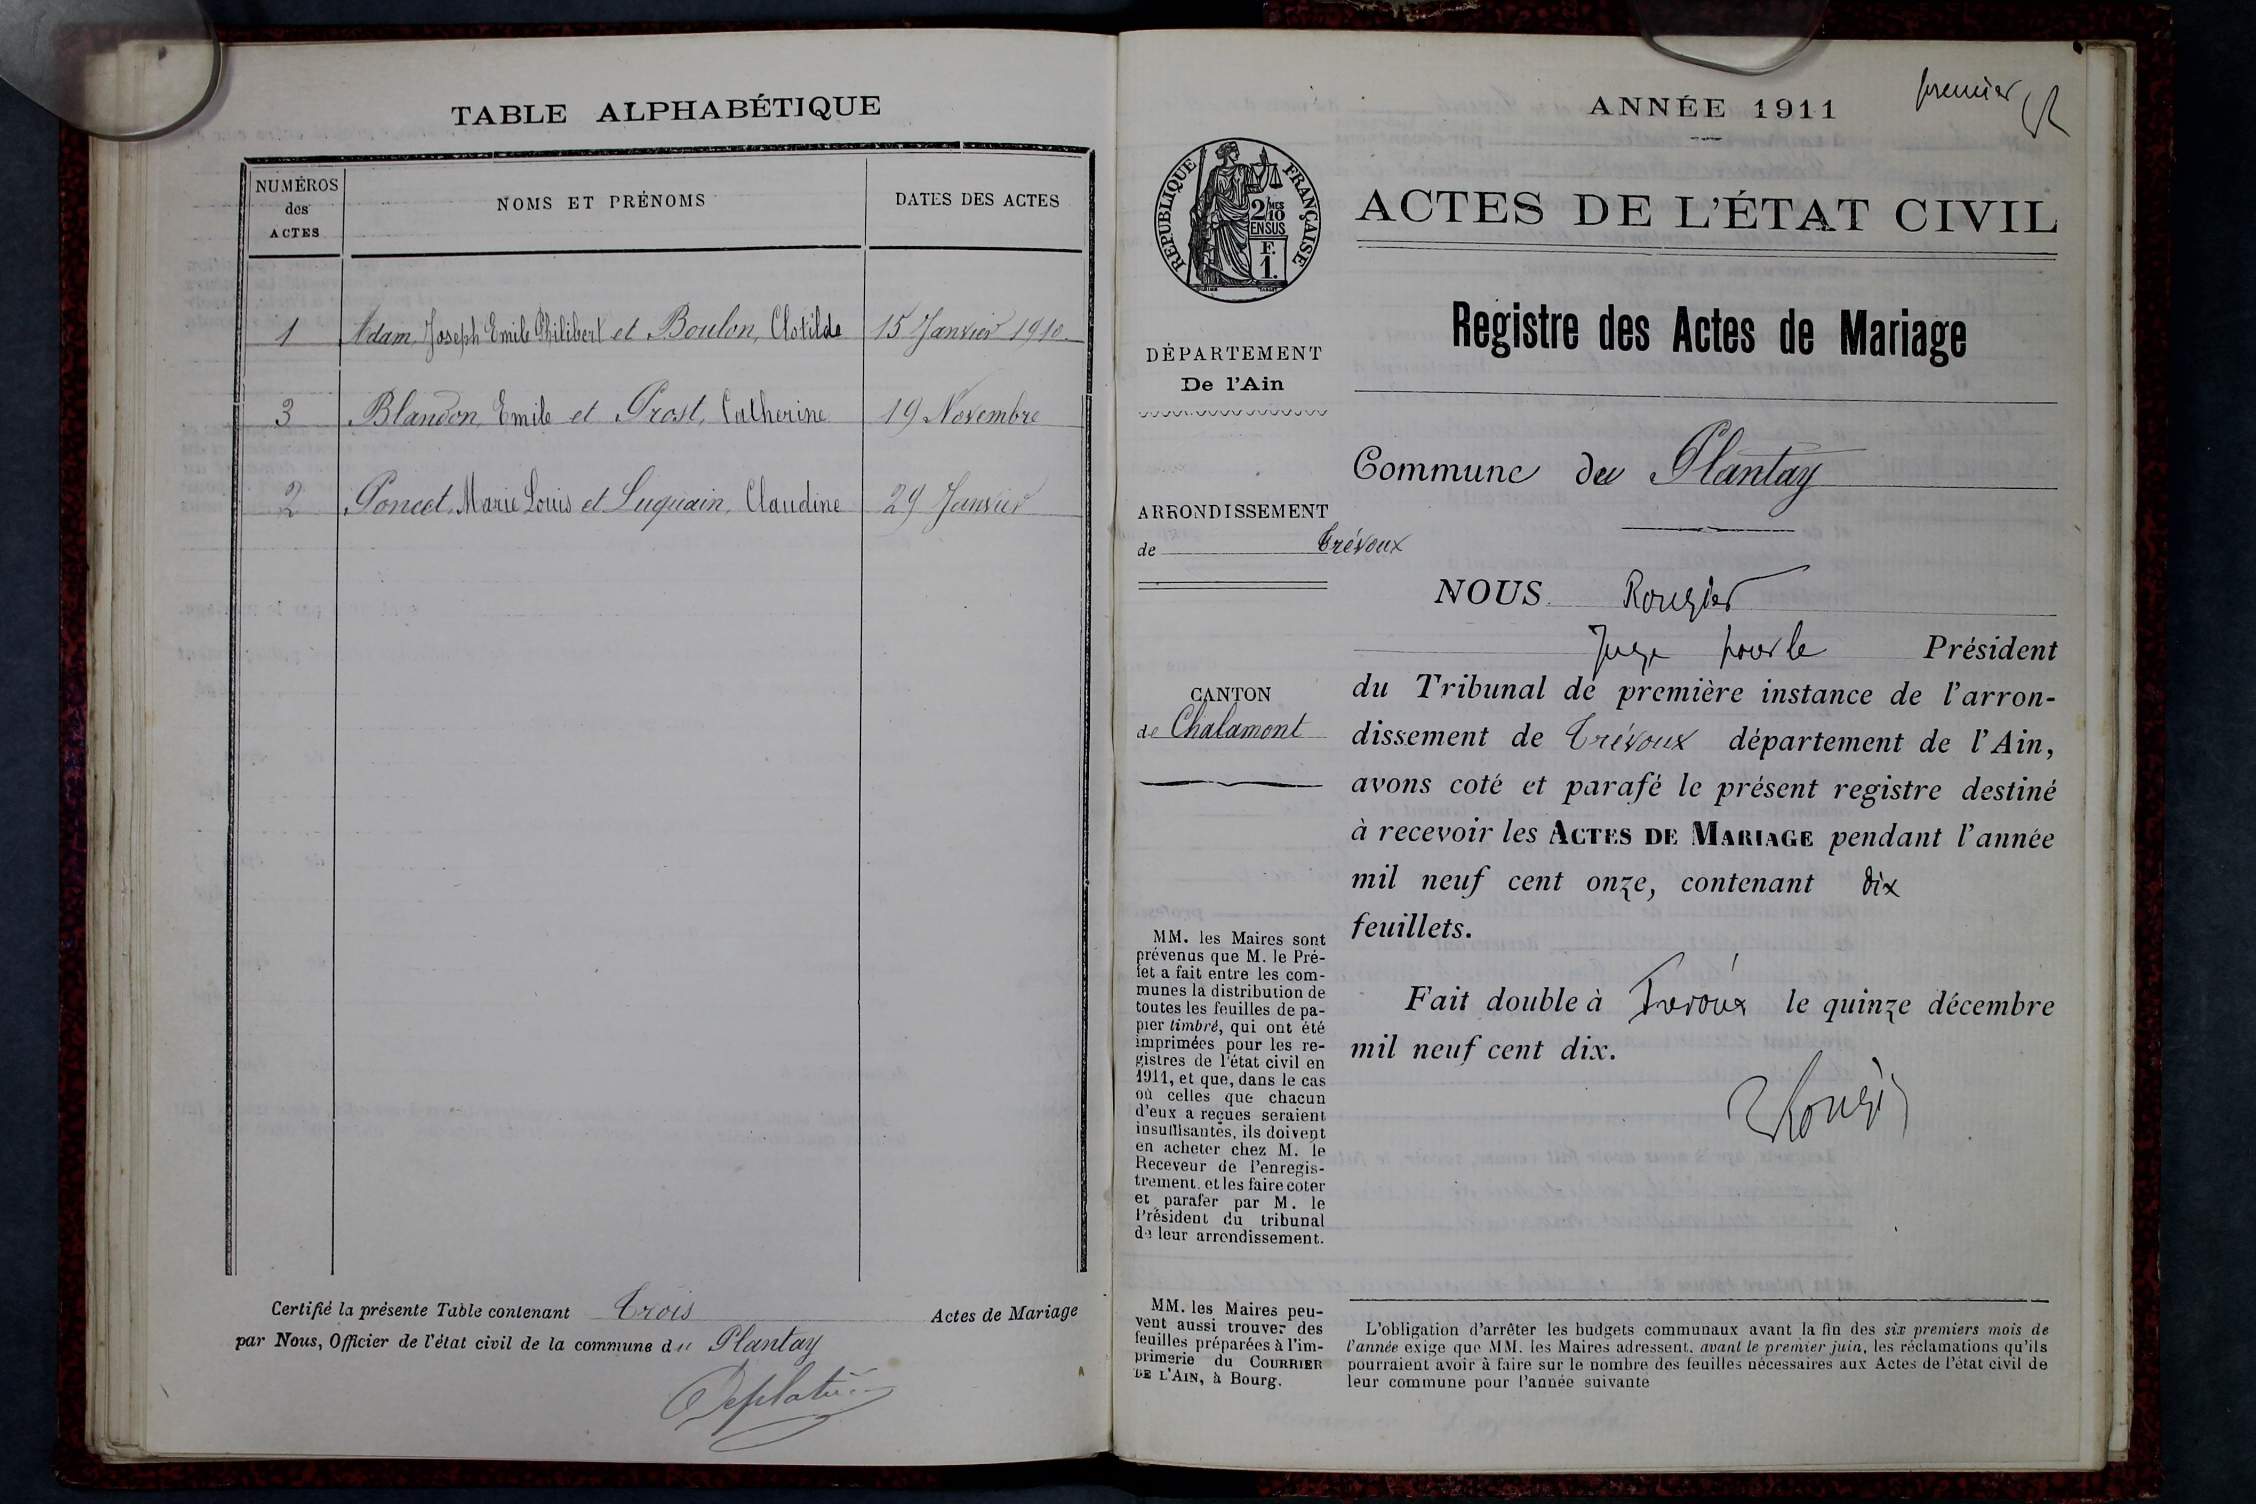 TABLE ALPHABÉTIQUE
NUMÉROS
des
ACTES
NOMS ET PRÉNOMS
DATES DES ACTES
1 Adam, Joseph Emile Philibert et Boulon, Clotilde 15 Janvier 1910
3 Blandon, Emile et Prost, Catherine 19 Novembre
2 Poncet, Marie Louis et Luquain, Claudine 29 Janvier
Certifié la présente Table contenant Trois Actes de Mariage
par Nous, Officier de l'état civil de la commune du Plantay
premier
ANNÉE 1911
RÉPUBLIQUE FRANÇAISE
2/10MES
EN SUS
F.
1.
ACTES DE L'ÉTAT CIVIL
Registre des Actes de Mariage
DÉPARTEMENT
De l'Ain
Commune du Plantay
ARRONDISSEMENT
de Trévoux
CANTON
de Chalamont
NOUS Rougier
Juge pour le Président
du Tribunal de première instance de l'arron-
dissement de Trévoux département de l'Ain,
avons coté et parafé le présent registre destiné
à recevoir les ACTES DE MARIAGE pendant l'année
mil neuf cent onze, contenant dix
feuillets.
Fait double à Trevoux le quinze décembre
mil neuf cent dix.
Rougier
MM. les Maires sont
prévenus que M. le Pré-
fet a fait entre les com-
munes la distribution de
toutes les feuilles de pa-
pier timbré, qui ont été
imprimées pour les re-
gistres de l'état civil en
1911, et que, dans le cas
où celles que chacun
d'eux a reçues seraient
insuffisantes, ils doivent
en acheter chez M. le
Receveur de l'enregis-
trement, et les faire coter
et parafer par M. le
Président du tribunal
de leur arrondissement.
MM. les Maires peu-
vent aussi trouver des
feuilles préparées à l'im-
primerie du COURRIER
DE L'AIN, à Bourg.
L'obligation d'arrêter les budgets communaux avant la fin des six premiers mois de
l'année exige que MM. les Maires adressent, avant le premier juin, les réclamations qu'ils
pourraient avoir à faire sur le nombre des feuilles nécessaires aux Actes de l'état civil de
leur commune pour l'année suivante